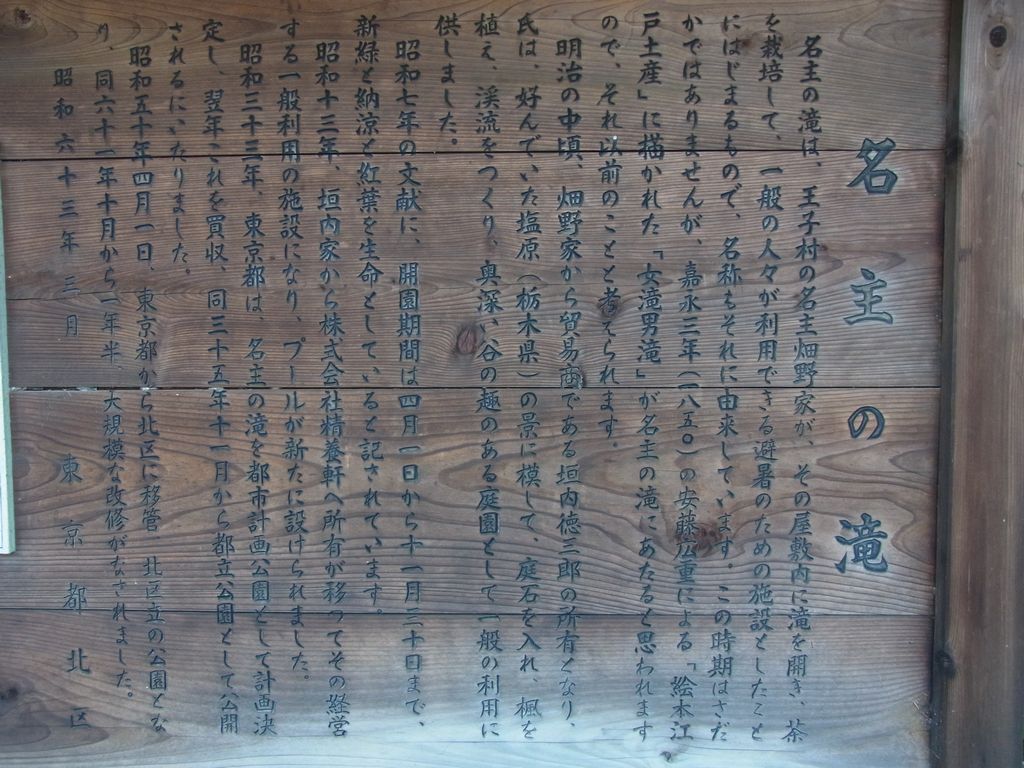 名主の滝
名主の滝は、王子村の名主畑野家が、その屋敷内に滝を開き、茶
を栽培して、一般の人々が利用できる避暑のための施設としたこと
にはじまるもので、名称もそれに由来しています。この時期はさだ
かではありませんが、嘉永三年(一八五〇)の安藤広重による「絵本江
戸土産」に描かれた「女滝男滝」が名主の滝にあたると思われます
ので、それ以前のことと考えられます。
明治の中頃、畑野家から貿易商である垣内徳三郎の所有となり、
氏は、好んでいた塩原(栃木県)の景に模して、庭石を入れ、楓を
植え、渓流をつくり、奥深い谷の趣のある庭園として一般の利用に
供しました。
昭和七年の文献に、開園期間は四月一日から十一月三十日まで、
新緑と納涼と紅葉を生命としていると記されています。
昭和十三年、垣内家から株式会社精養軒へ所有が移ってその経営
する一般利用の施設になり、プールが新たに設けられました。
昭和三十三年、東京都は、名主の滝を都市計画公園として計画決
定し、翌年これを買収、同三十五年十一月から都立公園として公開
されるにいたりました。
昭和五十年四月一日、東京都から北区に移管、北区立の公園とな
り、同六十一年十月から一年半、大規模な改修がなされました。
昭和六十三年三月 東京都北区